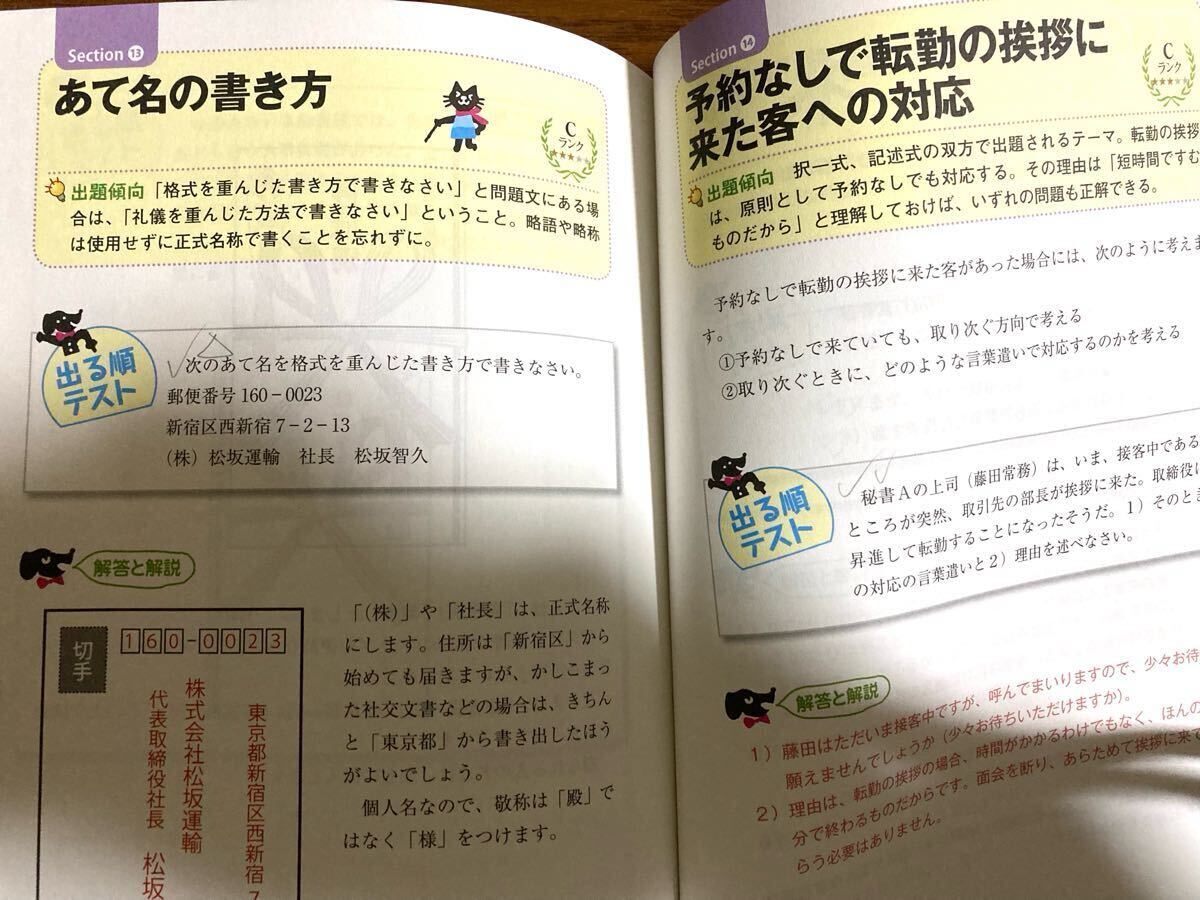 Section 13
あて名の書き方
C
ランク
出題傾向 「格式を重んじた書き方で書きなさい」と問題文にある場
合は、「礼儀を重んじた方法で書きなさい」ということ。略語や略称
は使用せずに正式名称で書くことを忘れずに。
出る順
テスト
次のあて名を格式を重んじた書き方で書きなさい。
郵便番号 160-0023
新宿区西新宿 7-2-13
(株) 松坂運輸 社長 松坂智久
解答と解説
切手
160-0023
東京都新宿区西新宿 7
株式会社松坂運輸
代表取締役社長 松坂
「(株)」や「社長」は、正式名称
にします。住所は「新宿区」から
始めても届きますが、かしこまっ
た社交文書などの場合は、きちん
と「東京都」から書き出したほう
がよいでしょう。
個人名なので、敬称は「殿」で
はなく「様」をつけます。
Section 14
予約なしで転勤の挨拶に
来た客への対応
C
ランク
出題傾向 択一式、記述式の双方で出題されるテーマ。転勤の挨拶
は、原則として予約なしでも対応する。その理由は「短時間ですむ
ものだから」と理解しておけば、いずれの問題も正解できる。
予約なしで転勤の挨拶に来た客があった場合には、次のように考えま
す。
①予約なしで来ていても、取り次ぐ方向で考える
②取り次ぐときに、どのような言葉遣いで対応するのかを考える
出る順
テスト
秘書Aの上司(藤田常務)は、いま、接客中である
ところが突然、取引先の部長が挨拶に来た。取締役に
昇進して転勤することになったそうだ。1)そのとき
の対応の言葉遣いと2)理由を述べなさい。
解答と解説
1) 藤田はただいま接客中ですが、呼んでまいりますので、少々お待
願えませんでしょうか(少々お待ちいただけますか)。
2) 理由は、転勤の挨拶の場合、時間がかかるわけでもなく、ほんの
分で終わるものだからです。面会を断り、あらためて挨拶に来て
らう必要はありません。